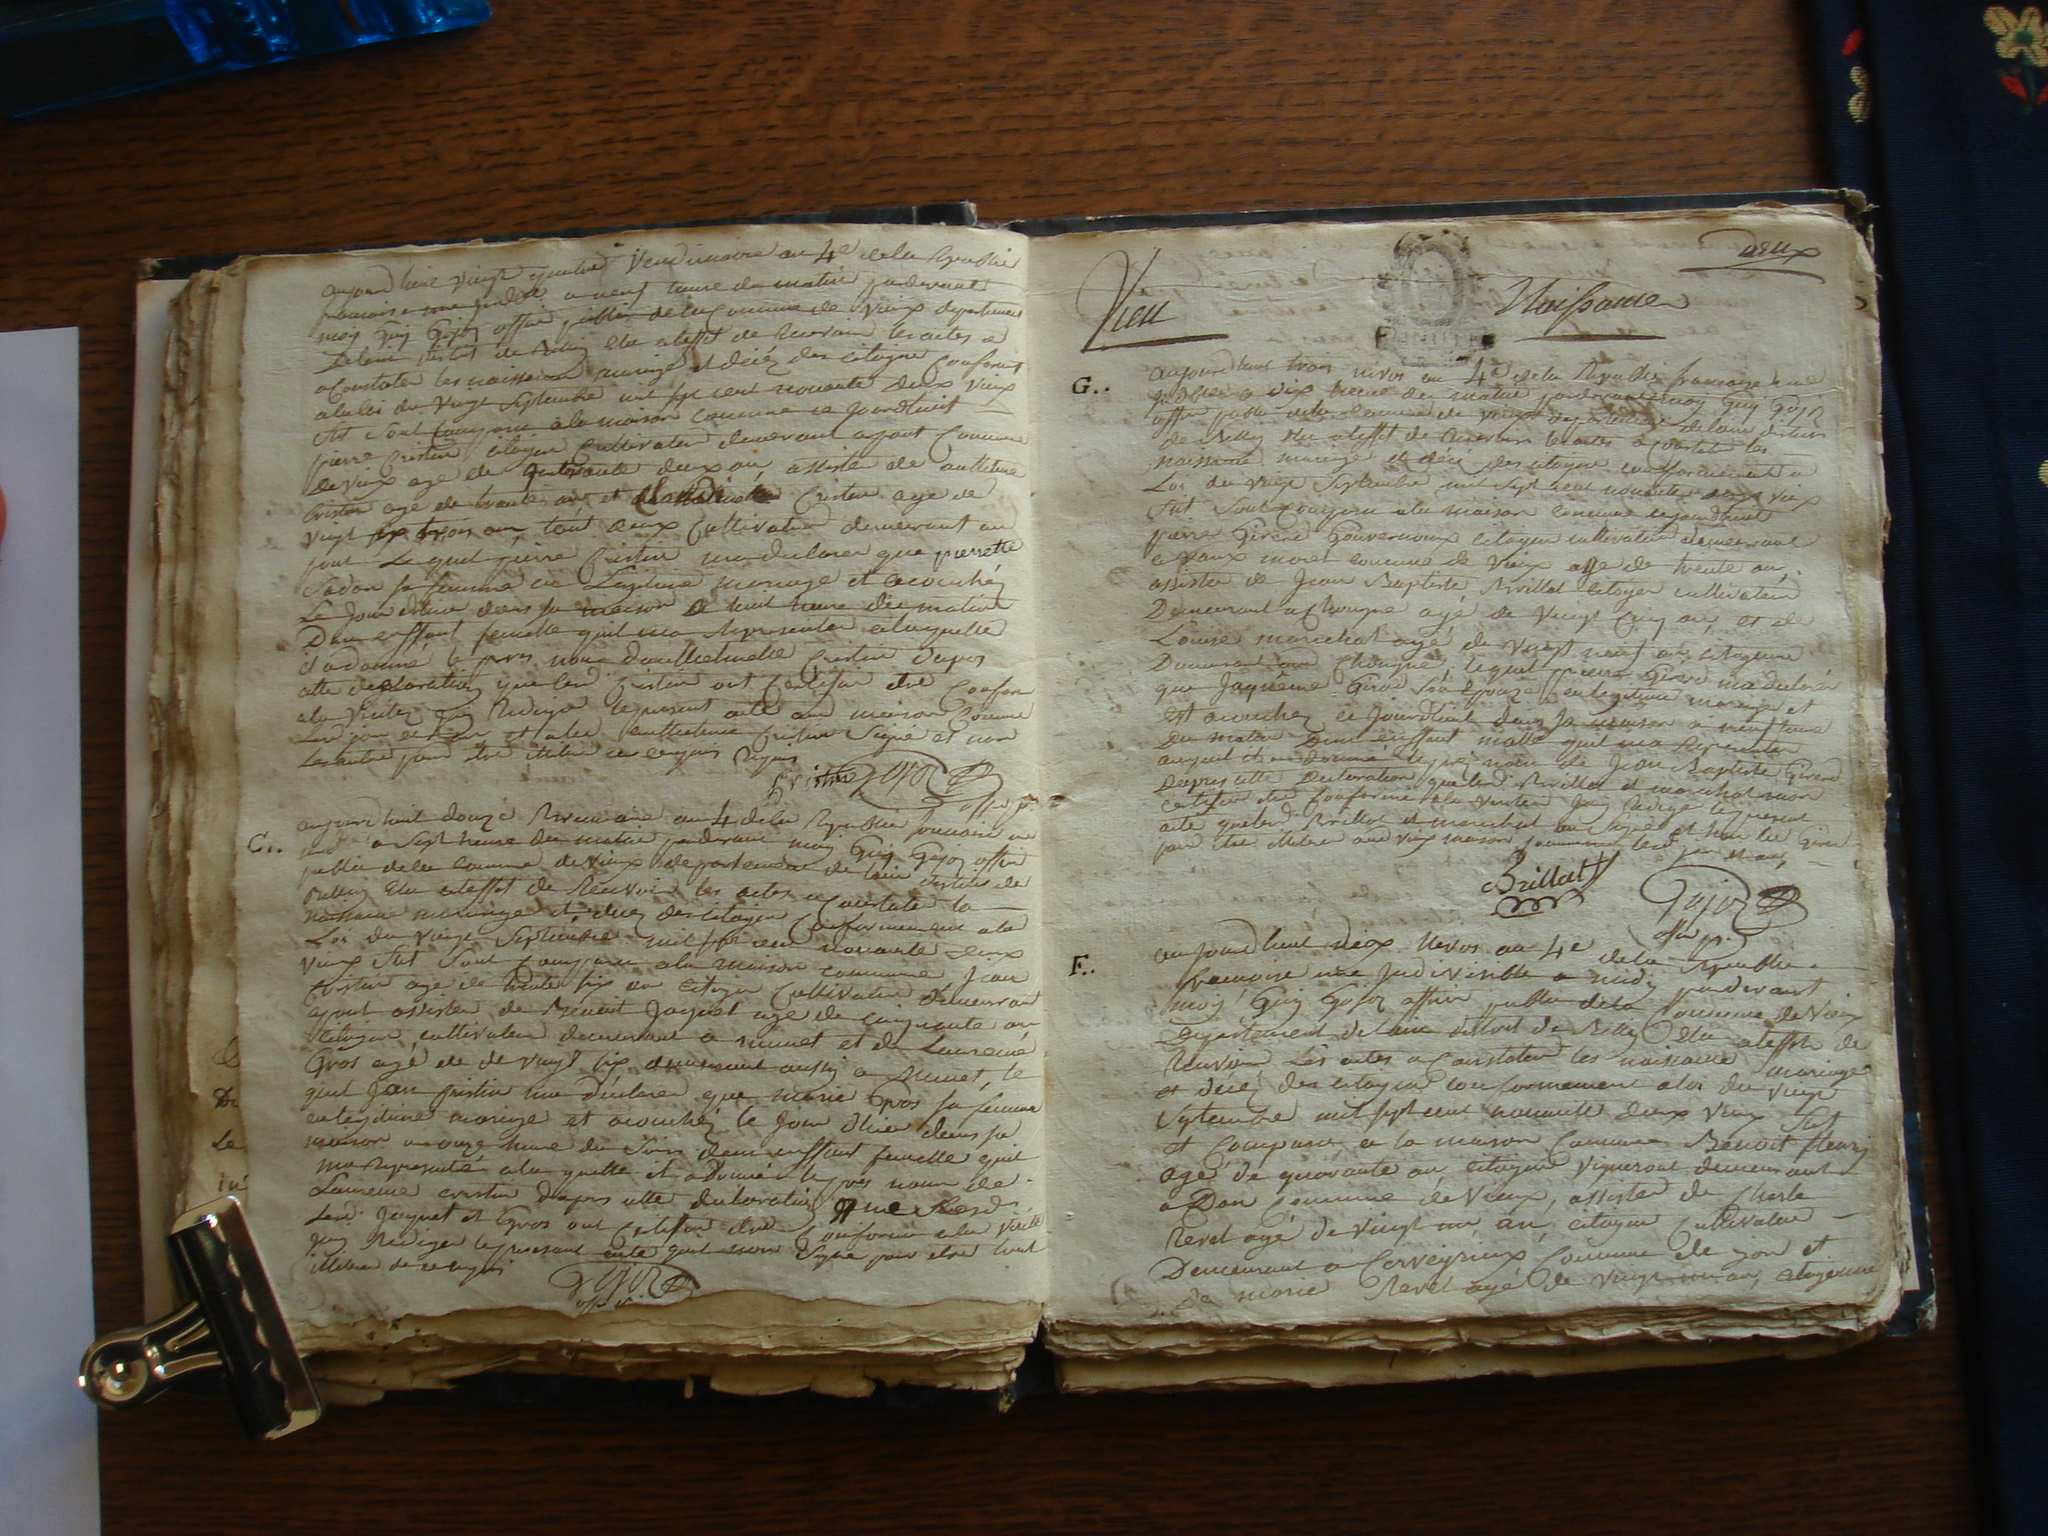 aujourdhuit vingt quatre Vendimaire an 4e dela Republie
francoise une a neuf heure du matin pardevant
moy Guy Gojoz officier public dela Commune de Vieux departement
Delain district de Belley elu aleffet de Recevoir les actes a
aConstater les naissance mariage et décé des citoyen Conforment
alaloi du vingt Septembre mil sept cent nonante deux vieux
Sti Sont Comparu a la maison Commune ce Jourdhuit
pierre Cristin citoyen Cultivater demeurant ajout Commune
De Vieux age de quarante deux an, assiste de anthelme
Cristin age de trante an et Cristin age de
vingt trois an, tout deux Cultivater demeurant au
jout Lequel pierre Cristin ma declarer que pierrette
sa femme en Legitime mariage et acouchéz
Le Jour dhier dans sa maison a huit heure du matin
Dun enffant femelle quil ma Representer alaquelle
il adonné le pres nom Danthelmette Cristin Dapres
cette declaration que led Cristin ont Certifier etre Conforme
ala Veritez Jay Redige le present acte an maison Commune
Led jour et an et aled anthelme Cristin Signe et non
Les autre
Cristin Gojoz
offier p.
C..
aujourdhuit douze Brumaire an 4 dela Republie francoise une
a Sept heure du matin pardevant moy Guy Gojoz offier
public dela Commune de Vieux departement de lain district de
Belley Elu aleffet de Recevoir les actes a Constater la
naissance mariage et decez des Citoyen Conformement ala
Loi du vingt Septembre mil sept cent nonante deux
vieux Sti Sont Comparu a la maison Commune Jean
Cristin age de trente six an Citoyen Cultivater demeurant
ajout assister de Benoit Jaquet age de cinquante an
Citoyen cultivater demeurant a et de Laurence
Gros agé de de vingt six demeurant aussy a le
quel Jean Cristin ma déclare que marie Gros sa femme
en legitime mariage et acouchéz le Jour dhier dans sa
maison a onze heure du Soir dun enffant femelle quil
ma Representé a la quelle il adonné le pres nom de
Laurence Cristin Dapres cette declaration que Lesd
Led. Jaquet et Gros ont Certifier etre Conforme ala Vérité
Jay Redige le present acte quil non Signe pour etre
Gojoz
off p.
Vieu
Naissance
Deux
G..
aujourdhuit trois nivos an 4e dela Republie francoise une
a dix heure du matin pardevant moy Guy Gojoz
offier public dela Commune de Vieux departement delain district
de Belley elu aleffet de Recevoir les actes a Constater les
naissance mariage et décé des citoyen conformement a
Loi du vingt Septembre mil sept cent nonante deux vieux
Sti Sont Comparu ala maison Commune cejourdhuit
pierre Girerd Gouvernoux Citoyen cultivater demeurant
a vaux moret commune de Vieux age de trente an,
assister de Jean Baptiste Brillat Citoyen cultivateur
Demeurant a Chougne agé de vingt Cinq an, et de
Louise marechal agé de vingt neuf an citoyenne
Demeurant Chougne, lequel pierre Girerd ma declarér
que Jaquéme Giros Son Epouze en legitime mariage et
et acouchez ce Jourdhuit dans sa maison a neuf heure
Du matin Dun enffant malle quil ma Representer
auquel il a donné le pre nom de Jean Baptiste Girerd
Dapres cette Declaration que led Brillat et marechal mon
certifier etre Conforme ala Veritez Jay Redige le present
acte que led Brillat et marechal on Signé et non led Girerd
Brillat
Gojoz
offier p.
F..
aujourdhuit Deux Nivos an 4e dela Republie
francoise une Indivisible a midy pardevant
moy Guy Gojoz offier public dela Commune de Vieux
Departement delain district de Belley Elu aleffet de
Recevoir Les actes a Constater les naissance mariage
et décé des citoyen conformement a loi du vingt
Septembre mil sept cent nonante deux vieux Sti
et Comparu a la maison Commune Benoit fleury
agé de quarante an citoyen vigneront demeurant
a Don Commune de Vieux, assister de Charle
Revet agé de vingt un an, citoyen Cultivateur
Demeurant a Corveyrieux, Commune de yon et
de marie Revet agé de vingt un an, citoyenne